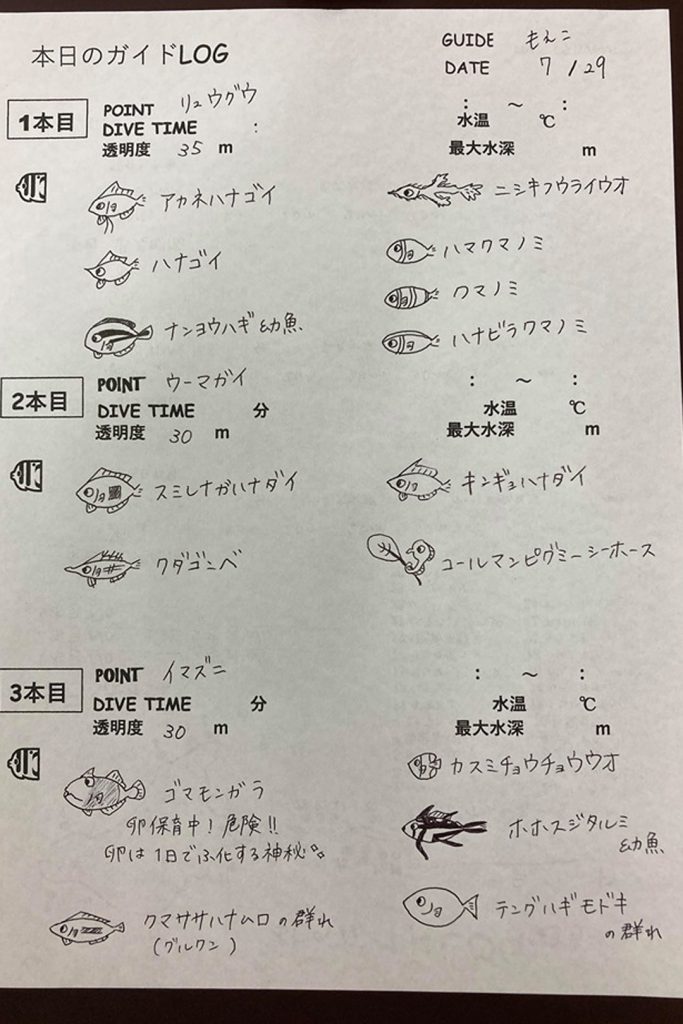 本日のガイドLOG
GUIDE もえこ
DATE 7/29
1本目
POINT リュウグウ
DIVE TIME :
: ～ :
水温 ℃
透明度 35 m
最大水深 m
アカネハナゴイ
ニシキフウライウオ
ハナゴイ
ハマクマノミ
クマノミ
ナンヨウハギ幼魚
ハナビラクマノミ
2本目
POINT ウーマガイ
: ～ :
DIVE TIME 分
水温 ℃
透明度 30 m
最大水深 m
スミレナガハナダイ
キンギョハナダイ
クダゴンベ
コールマンピグミーシーホース
3本目
POINT イマズニ
: ～ :
DIVE TIME 分
水温 ℃
透明度 30 m
最大水深 m
ゴマモンガラ
卵保育中！危険！！
卵は1日でふ化する神秘
カスミチョウチョウウオ
ホホスジタルミ
幼魚
クマササハナムロの群れ
(グルクン)
テングハギモドキ
の群れ